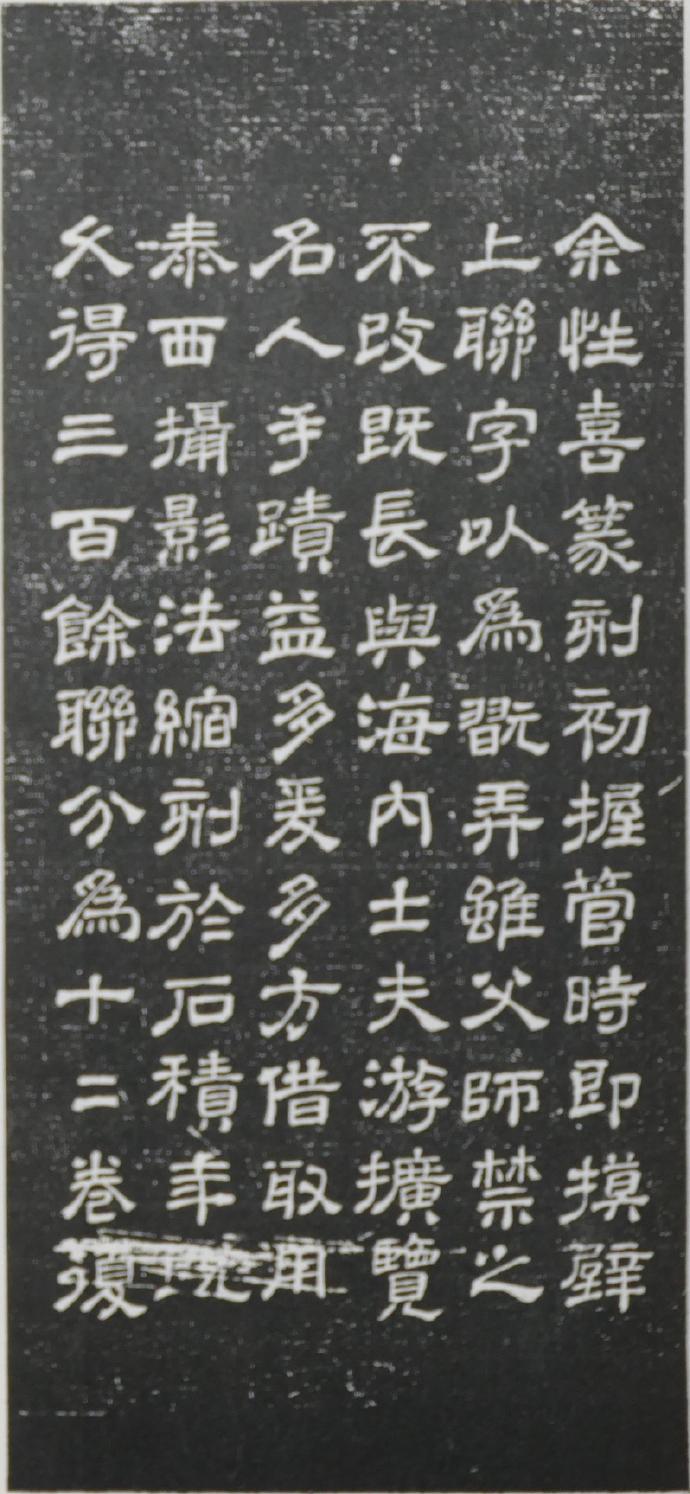 余性喜篆刻初握管時即摸壁
上聯字以為翫弄雖父師禁之
不改既長與海內士夫游擴覽
名人手蹟益多爰多方借取用
泰西攝影法縮刻於石積年
久得三百餘聯分為十二卷復